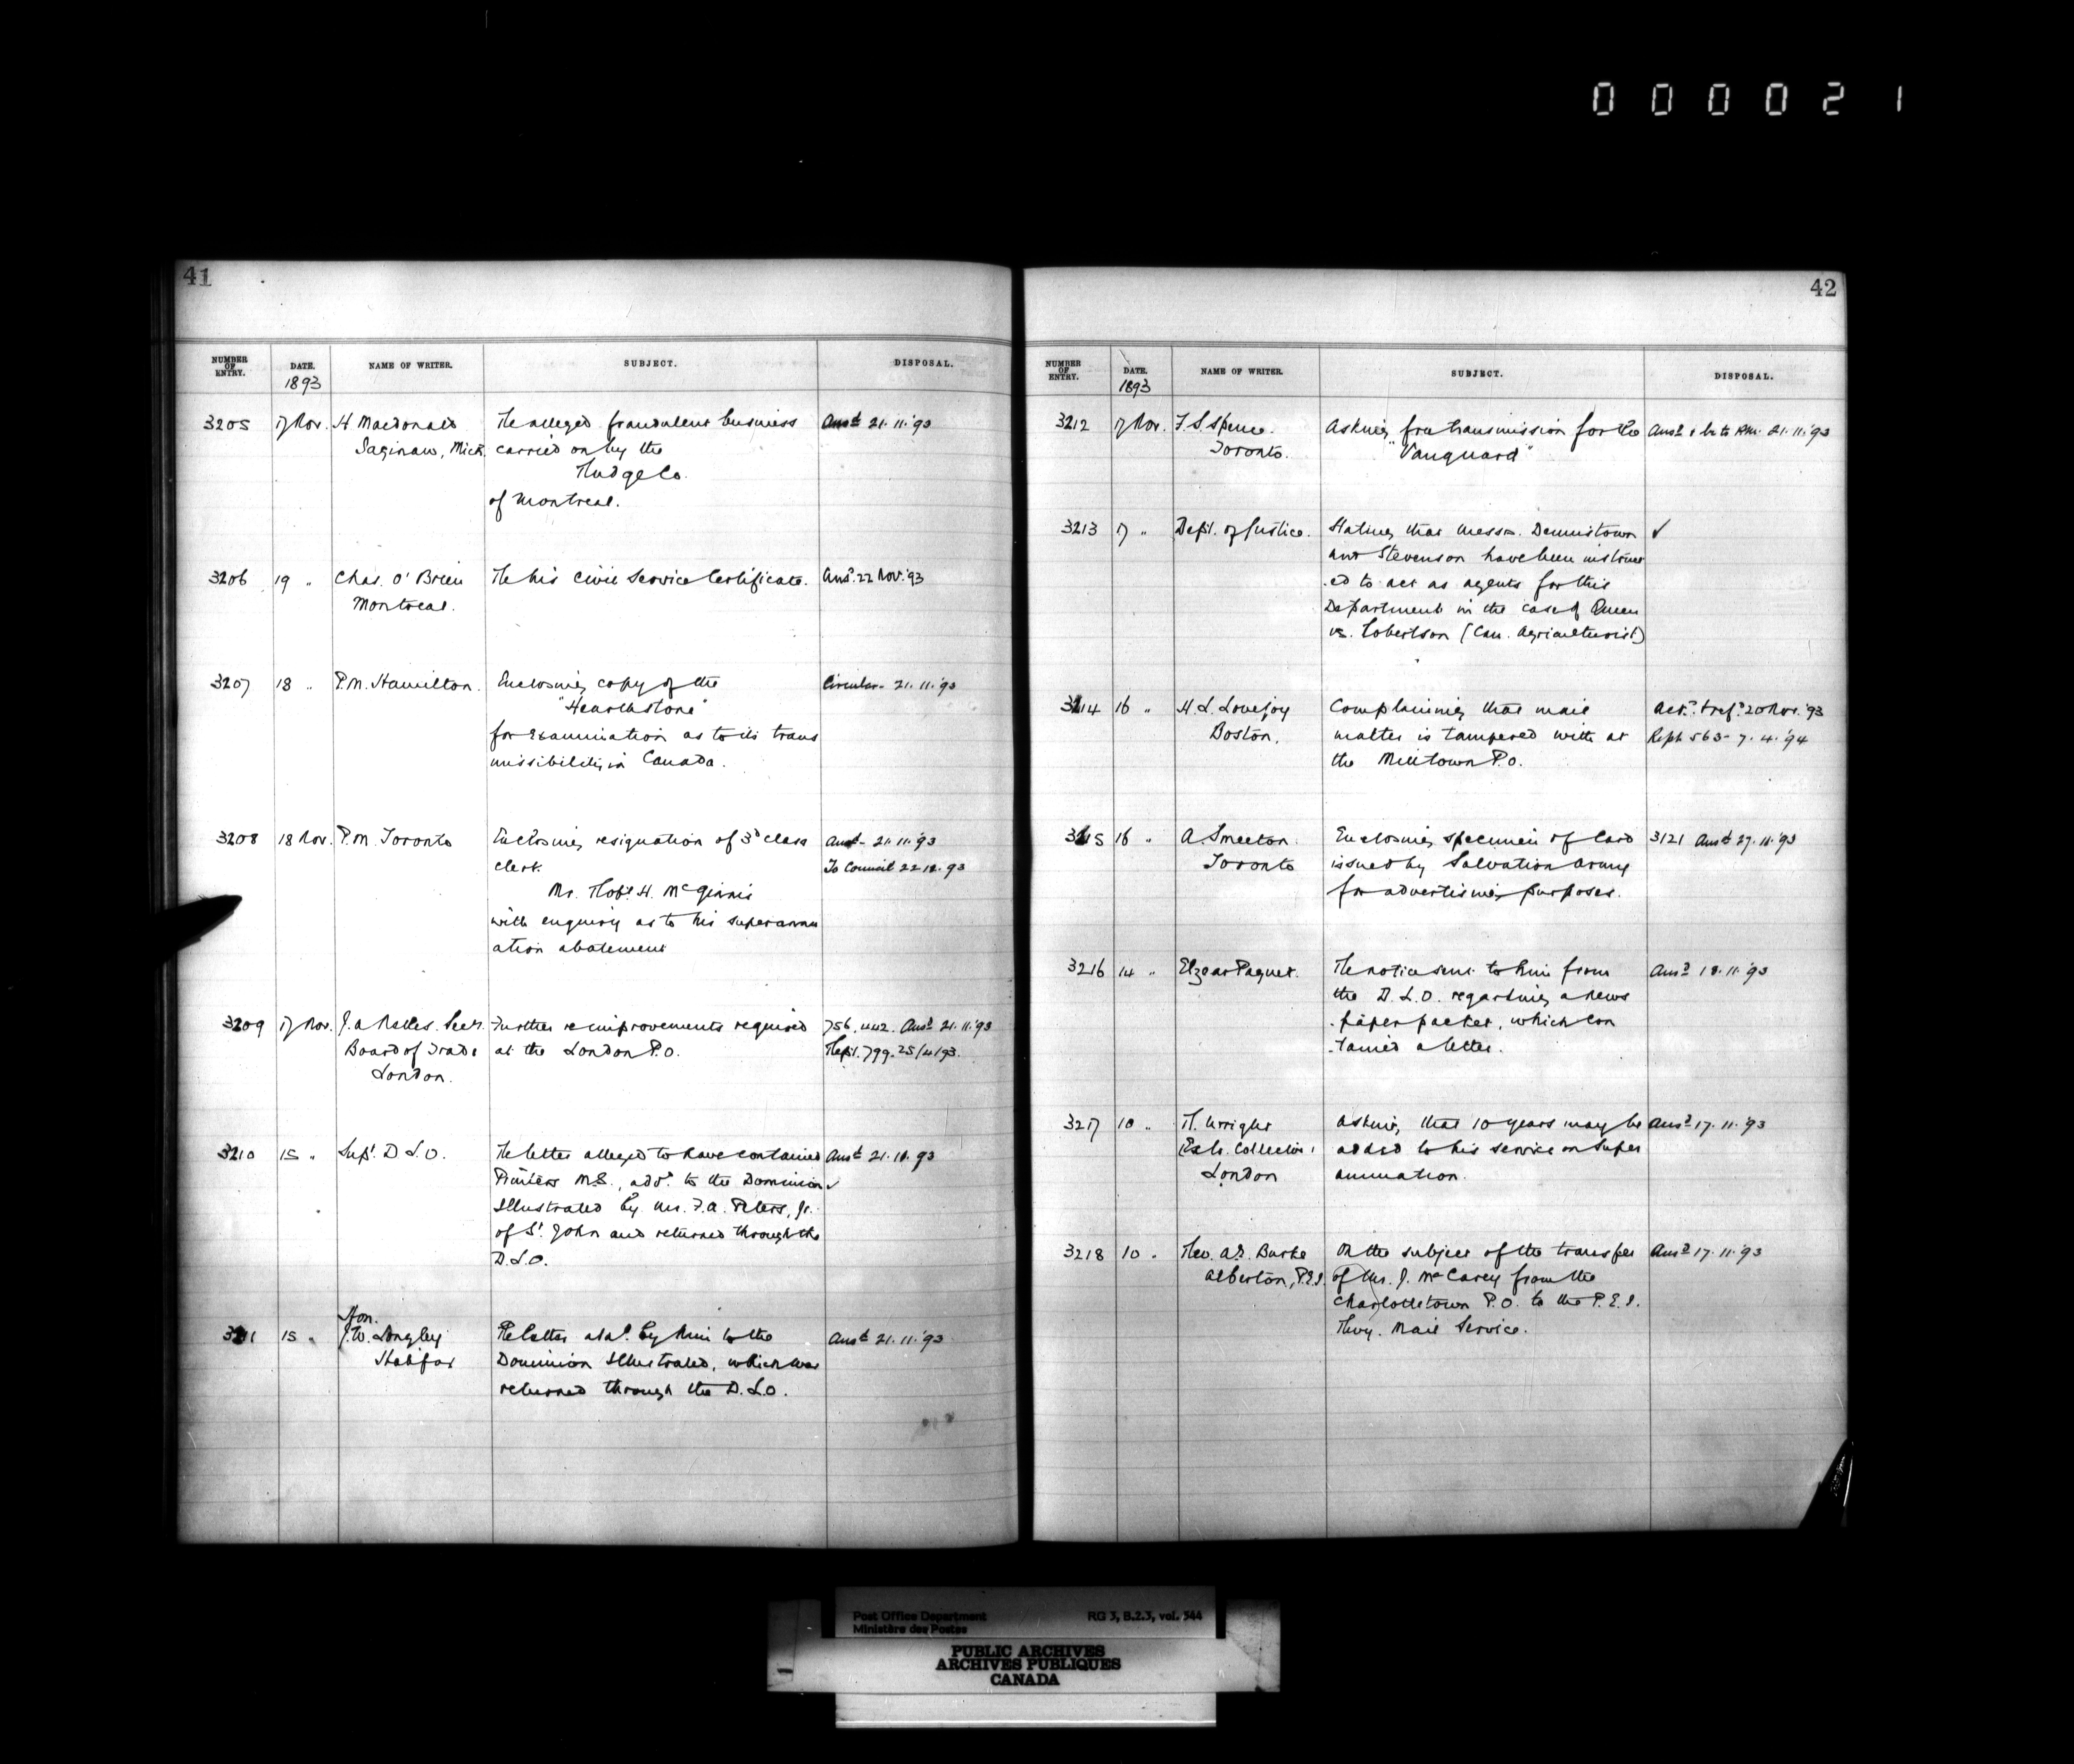 000021
41
NUMBER OF ENTRY. DATE. NAME OF WRITER. SUBJECT. DISPOSAL.
1893
3205 17 Nov. H Macdonald Re alleged fraudulent business Ansd 21.11.'93
Saginaw, Mich. carried on by the
Co.
of Montreal.
3206 19 " Chas. O'Brien Re his Civil Service Certificate. Ansd. 22 Nov. '93
Montreal.
3207 18 " P.M. Hamilton. Enclosing copy of the Circular 21.11.'93
"Hearthstone"
for examination as to its trans
missibility in Canada.
3208 18 Nov. P.M. Toronto Enclosing resignation of 3d class Ansd 21.11.'93
clerk To Council 22 .93
Mr. Robt. H. McGinnis
with enquiry as to his superannu
ation abatement
3209 17 Nov. J.A. Secy. Further re improvements required 756, 442. Ansd 21.11.'93
Board of Trade at the London P.O. Rept. 799. 25/4/93.
London.
3210 15 " Supt. D.L.O. Re letter alleged to have contained Ansd 21.11.93
Printers M.S., add. to the Dominion ✓
Illustrated by Mr. F.A. Peters, Jr.
of St. John and returned through the
D.L.O.
Hon.
3211 15 " J.W. Longley Re letter add. by him to the Ansd 21.11.'93
Halifax Dominion Illustrated, which was
returned through the D.L.O.
42
NUMBER OF ENTRY. DATE. NAME OF WRITER. SUBJECT. DISPOSAL.
1893
3212 17 Nov. F.S. Spence. Asking free transmission for the Ansd & 21.11.'93
Toronto. "Vanguard"
3213 17 " Dept. of Justice. Stating that Messrs. Dennistown ✓
and Stevenson have been instruct
ed to act as agents for this
Department in the case of Queen
vs. Robertson (Can. Agriculturist)
3214 16 " H.L. Lovejoy Complaining that mail Ackd. & refd. 20 Nov. '93
Boston. matter is tampered with at Rept 563 - 7.4.'94
the Milltown P.O.
3215 16 " A. Smeeton. Enclosing specimen of Card 3121 Ansd 27.11.'93
Toronto issued by Salvation Army
for advertising purposes.
3216 14 " Elzear Paquet. Re notice sent to him from Ansd 18.11.'93
the D.L.O. regarding a news
paper packet, which con
tained a letter.
3217 10 " R. Wright Asking that 10 years may be Ansd 17.11.'93
Ex Collector added to his service on super
London annuation.
3218 10 " Rev. A.E. Burke On the subject of the transfer Ansd 17.11.'93
Alberton, P.E.I. of Mr. J. McCarey from the
Charlottetown P.O. to the P.E.I.
Rwy. Mail Service.
Post Office Department RG 3, B.2.3, vol. 544
Ministère des Postes
PUBLIC ARCHIVES
ARCHIVES PUBLIQUES
CANADA